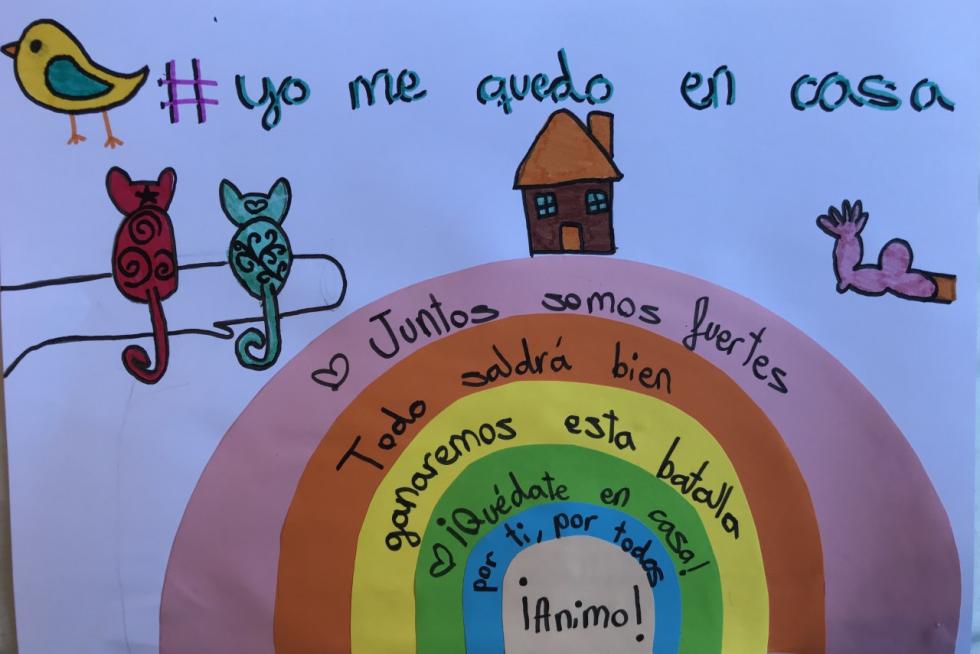 #yo me quedo en casa
Juntos somos fuertes
Todo saldrá bien
ganaremos esta batalla
¡Quédate en casa!
por ti, por todos
¡Animo!